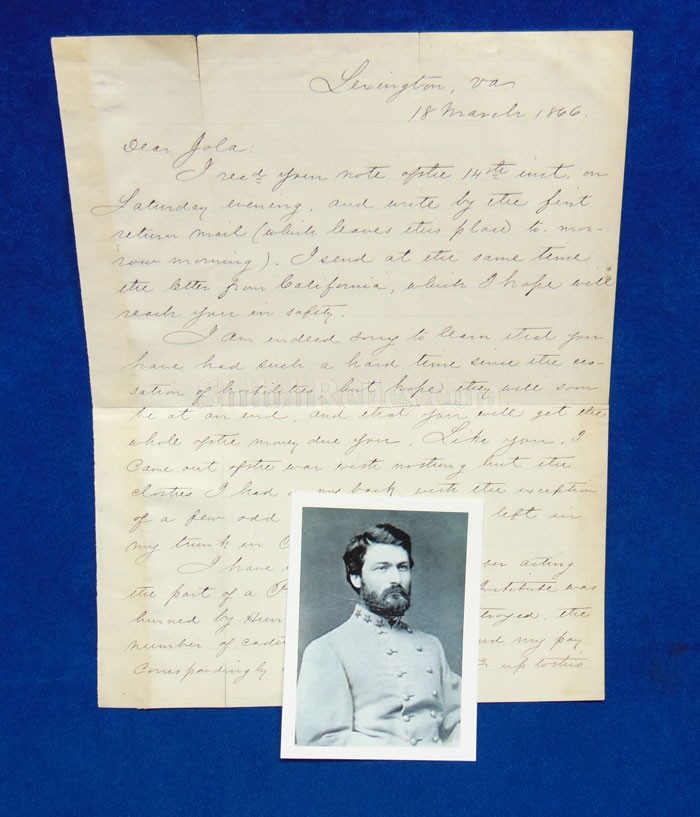 Lexington, Va.
18 March 1866.
Dear Jola:
I recd. your note of the 14th inst. on
Saturday evening, and write by the first
return mail (which leaves this place to-mor-
row morning). I send at the same time
the letter from California, which I hope will
reach you in safety.
I am indeed sorry to learn that you
have had such a hard time since the ces-
sation of hostilities, but hope they will soon
be at an end, and that you will get the
whole of the money due you. Like you, I
came out of the war with nothing but the
clothes I had on my back, with the exception
of a few odd left in
my trunk in
I have acting
the part of a Institute was
burned by Hun the
number of cadets and my pay
correspondingly up to this